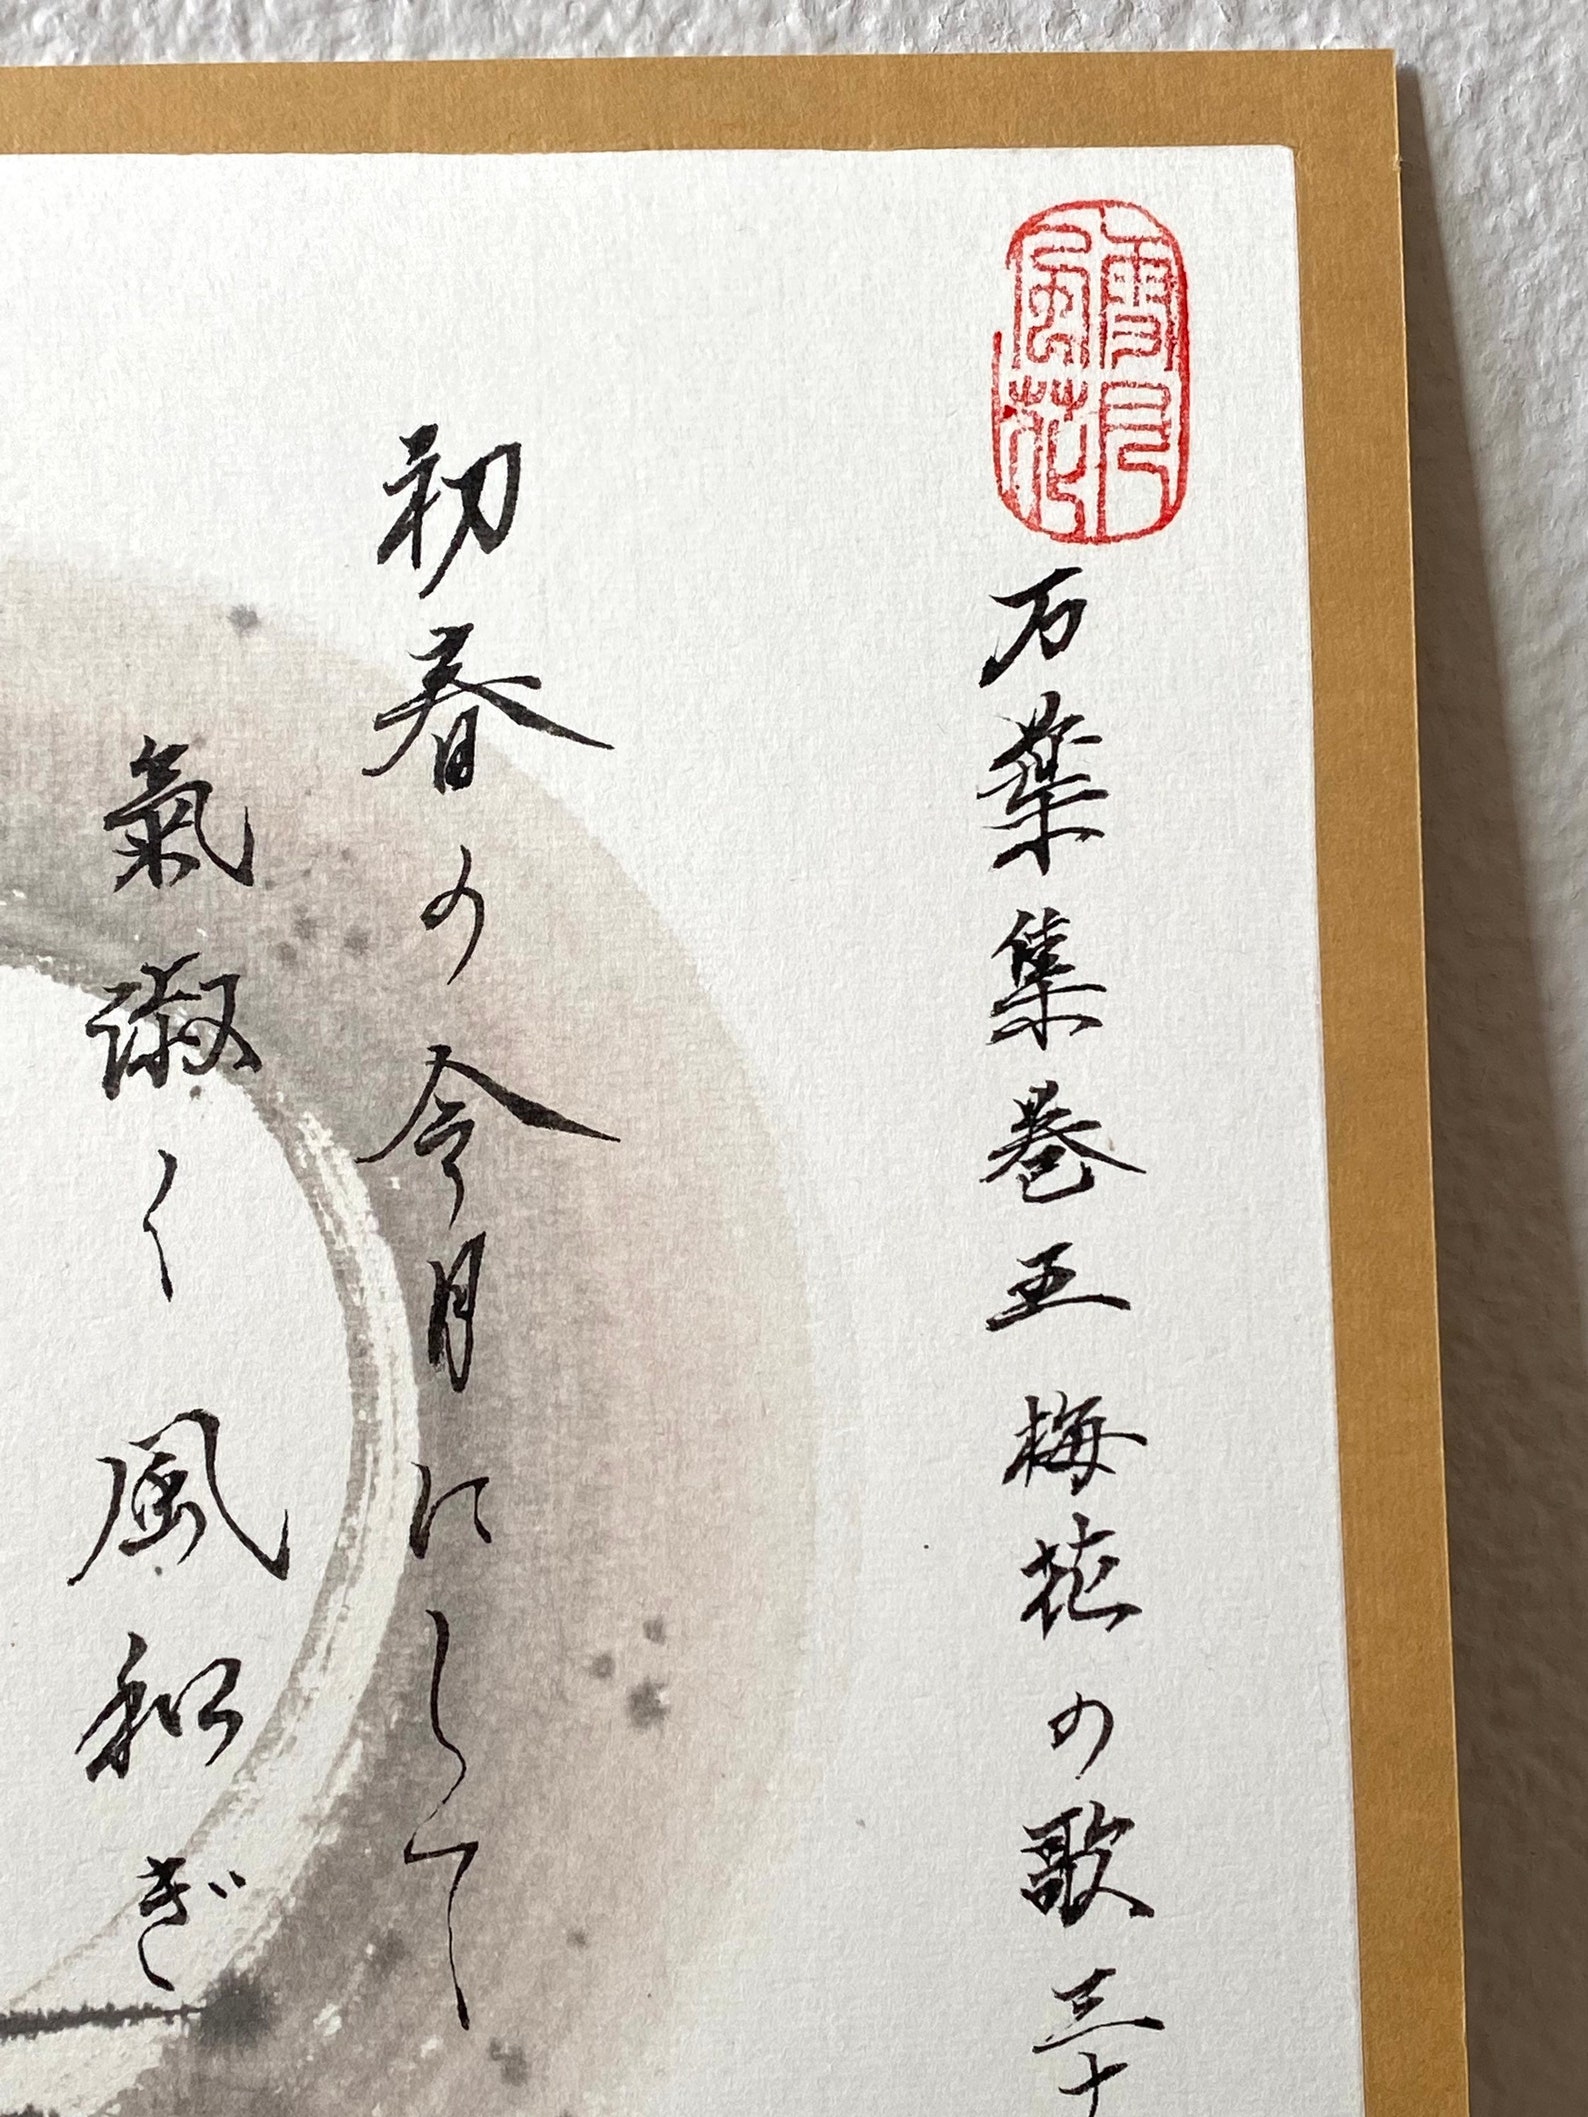 雪月風花
万葉集巻五梅花の歌三十
初春の令月にして
氣淑く風和ぎ